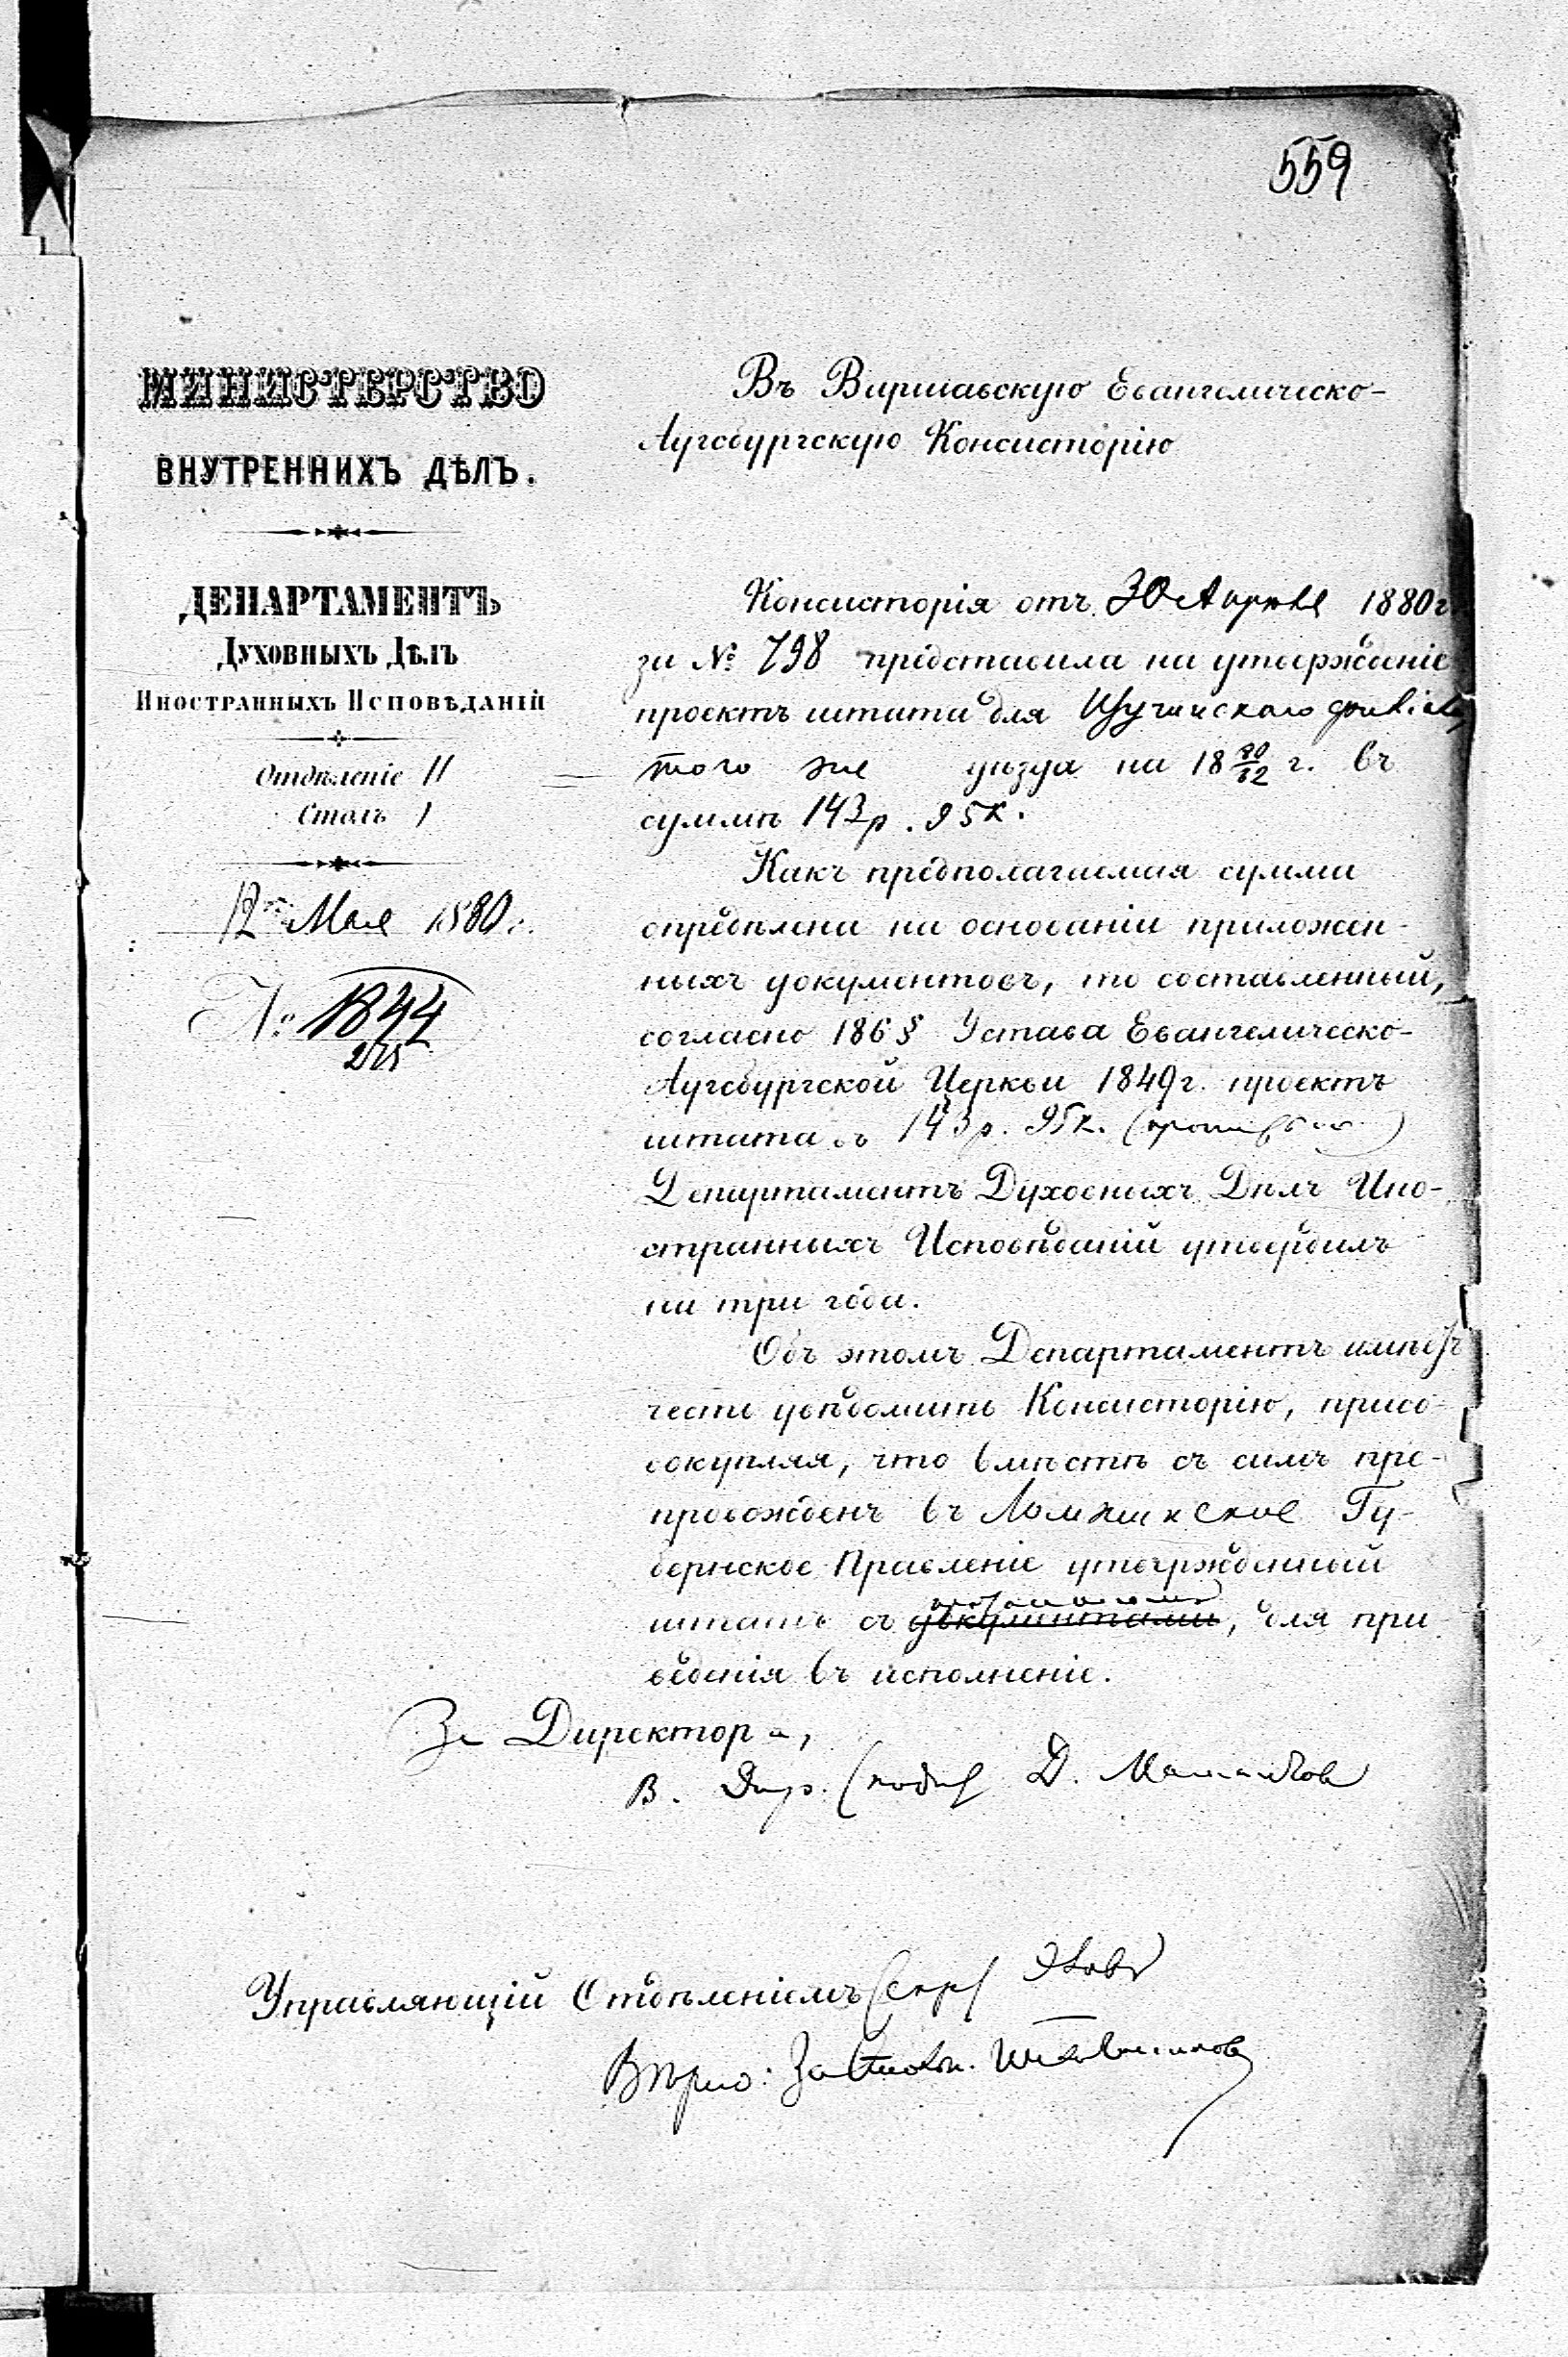 559
МИНИСТЕРСТВО
ВНУТРЕННИХЪ ДѢЛЪ.
ДЕПАРТАМЕНТЪ
Духовныхъ Дѣлъ
Иностранныхъ Исповѣданій
Отдѣленіе II
Столъ I
12 Мая 1880 г.
№ 1844
Въ Варшавскую Евангелическо-
Аугсбургскую Консисторію
Консисторія отъ 30 Апрѣля 1880 г
за № 798 представила на утвержденіе
проектъ штата для Щучинскаго
того же уѣзда на 18 80/82 г. въ
суммѣ 143 р. 95 к.
Какъ предполагаемая сумма
опредѣлена на основаніи приложен-
ныхъ документовъ, то составленный,
согласно 186 § Устава Евангелическо-
Аугсбургской Церкви 1849 г. проектъ
штата въ 143 р. 95 к.
Департаментъ Духовныхъ Дѣлъ Ино-
странныхъ Исповѣданій утвердилъ
на три года.
Объ этомъ Департаментъ имѣетъ
честь увѣдомить Консисторію, присо-
вокупляя, что вмѣстѣ съ симъ пре-
провожденъ въ Ломжинское Гу-
бернское Правленіе утвержденный
штатъ съ документами, для при
веденія въ исполненіе.
За Директора,
В. Дир. (подп) Д.
Управляющій Отдѣленіемъ (скр)
Вѣрно: За Столон.